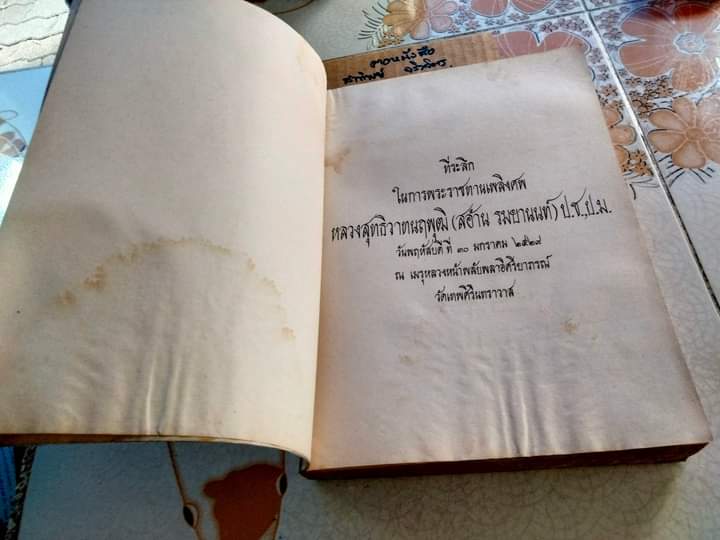 ที่ระลึก
ในการพระราชทานเพลิงศพ
หลวงสุทธิวาทนฤพุฒิ (สอ้าน รมยานนท์) ป.ช.,ป.ม.
วันพฤหัสบดี ที่ ๓๐ มกราคม ๒๕๒๙
ณ เมรุหลวงหน้าพลับพลาอิศริยาภรณ์
วัดเทพศิรินทราวาส